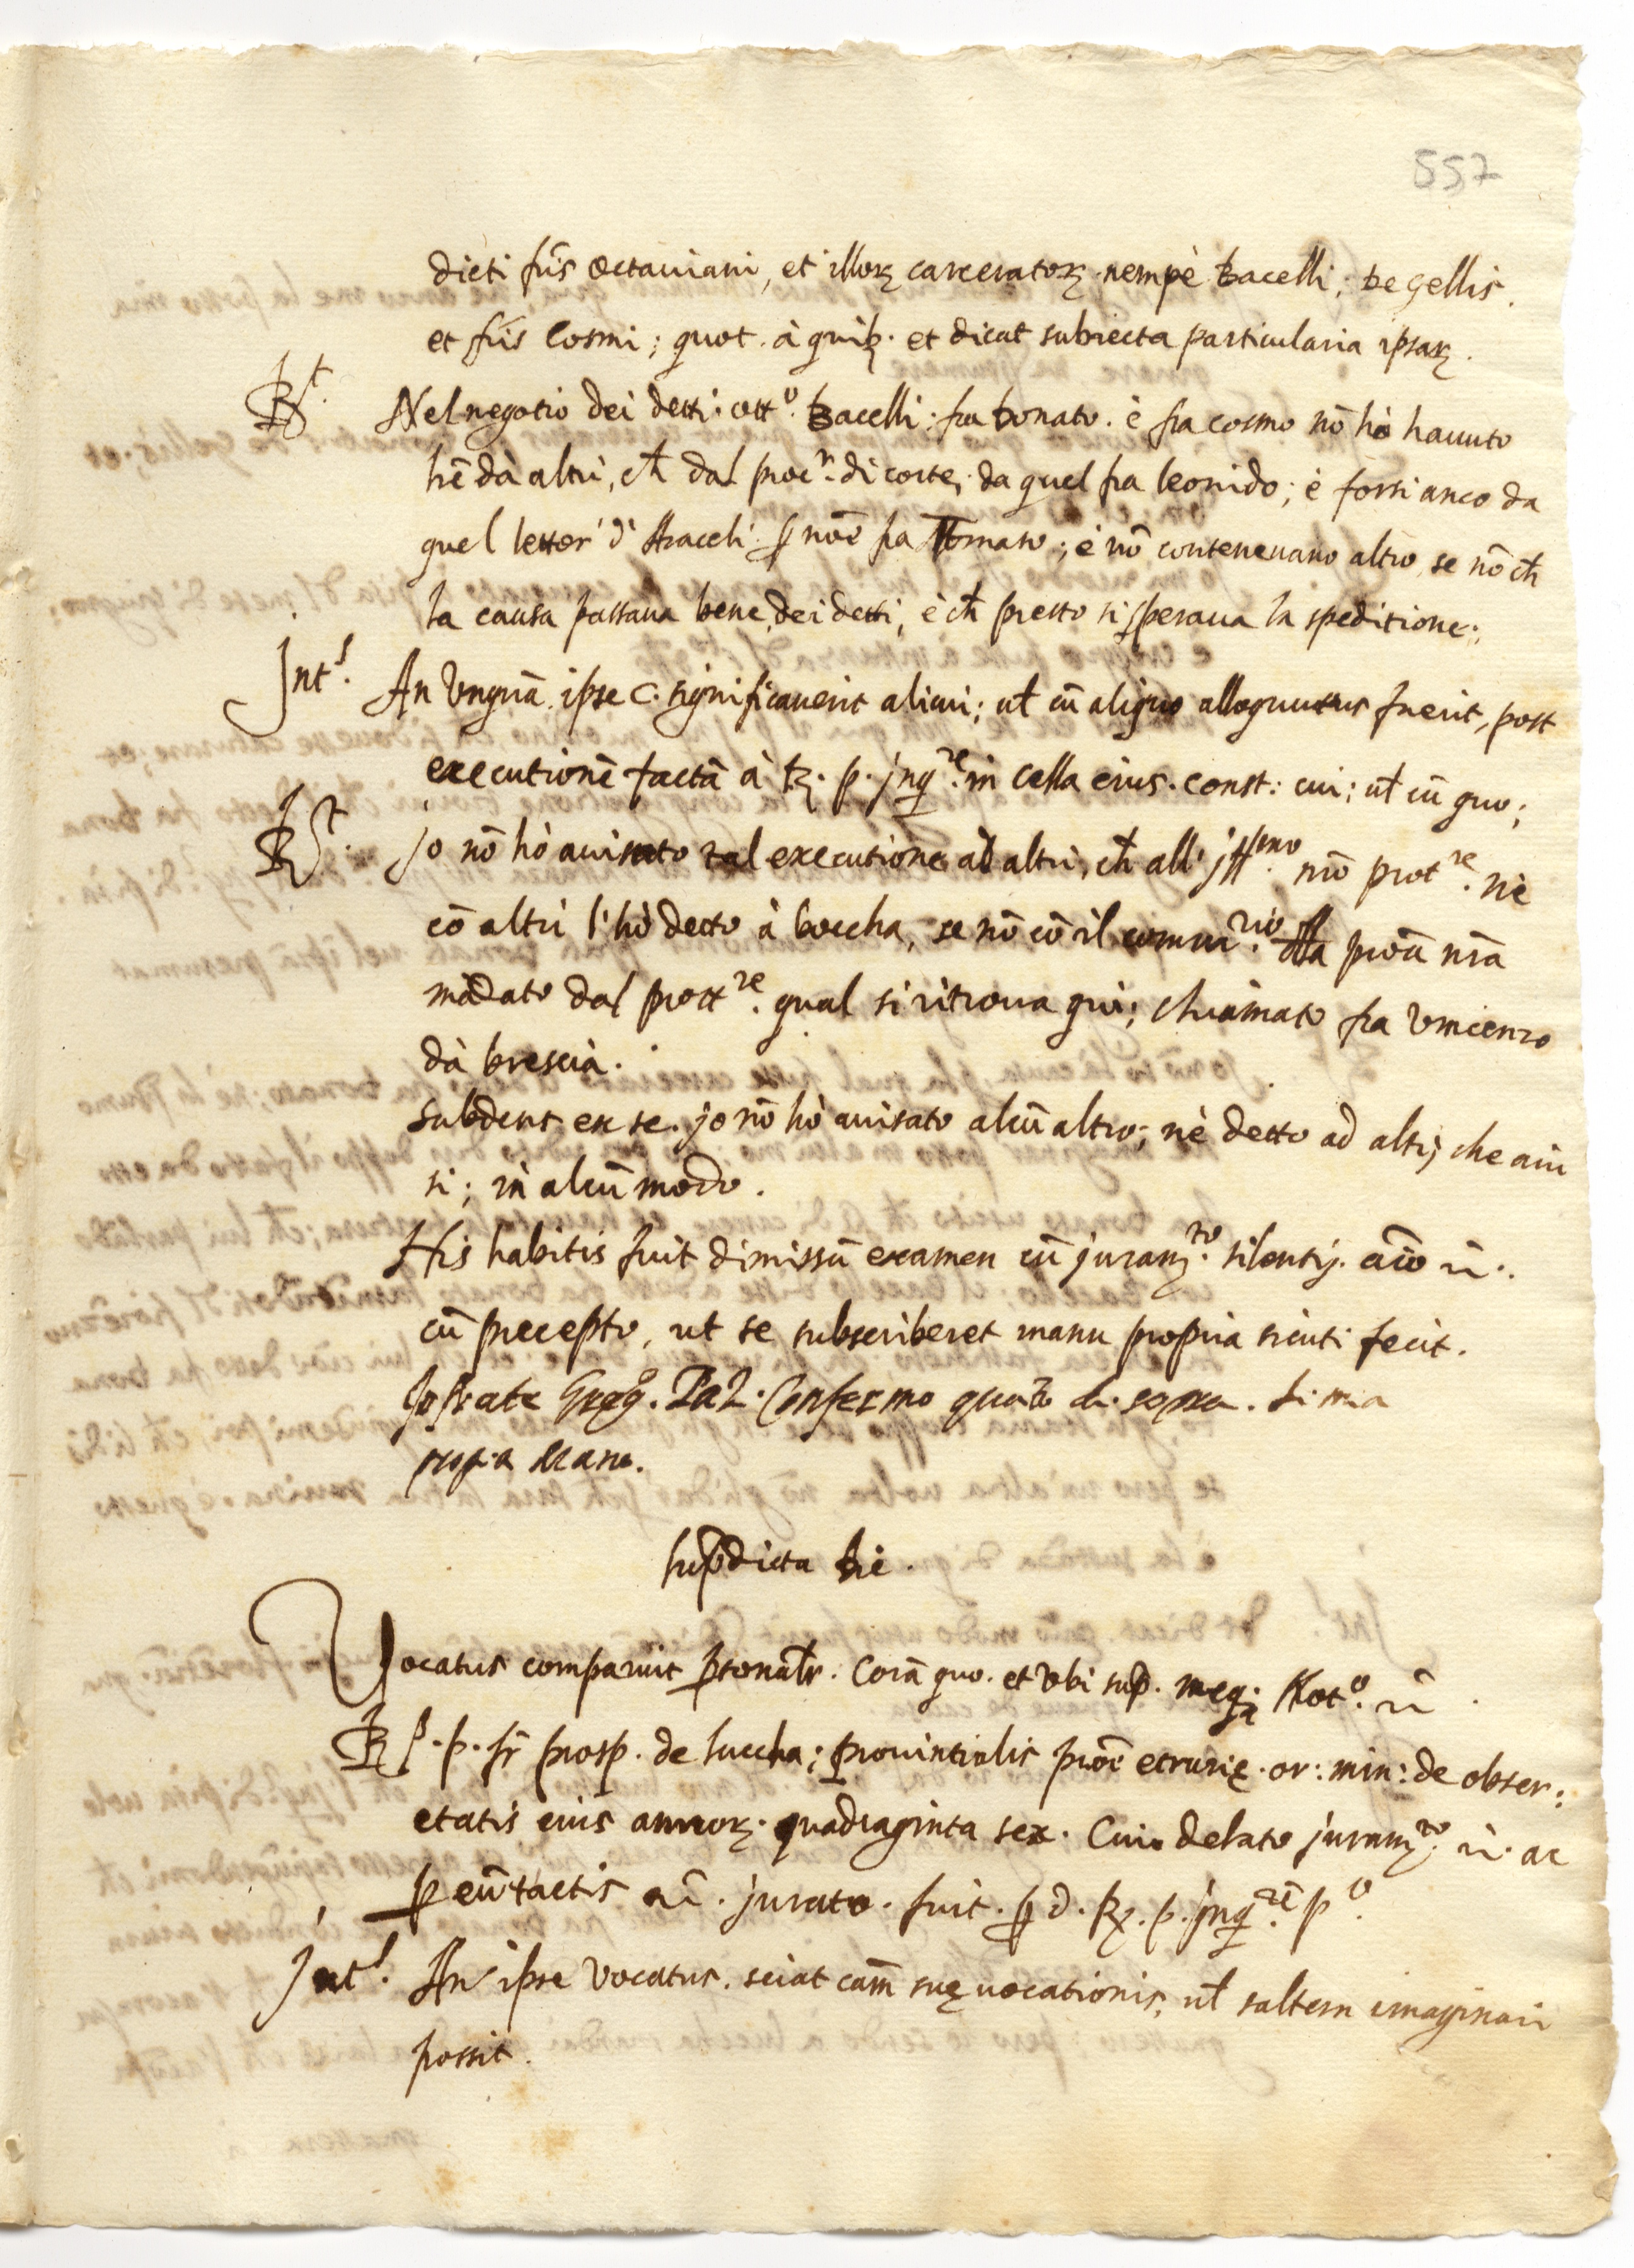 557
dicti fr̃is Octauiani, et illorꝫ carceratorꝫ. nempè bacelli; de gellis.
et fr̃is Cosmi; quot. à quibꝫ. et dicat subiecta particularia ipsarꝫ.
Rt. Nel negotio dei detti: otto. Bacelli: fra bonato. è fra cosmo nõ hò hauuto
lrẽ dà altri, ch̃ dal procr. di corte, da quel fra leonido; è forsi anco da
quel lettor d' Araceli. ꝑ nõe fra Tomaso; è nõ conteneuano altro, se nõ ch̃
la causa passaua bene, dei detti, è ch̃ presto si speraua la speditione:
Ints. An Vnquã ipse C. significauerit alicui; ul̃ cũ aliquo alloquutus fuerit, post
executionẽ factã à R. p. jnqre. in cella eius. const: cui; ul̃ cũ quo;
Rt. jo nõ hò auisato tal executione ad altri, ch̃ all' jllmo. nr̃o protre. nè
cõ altri l'hò detto à boccha, se nõ cõ il commrio. dlla prouã nr̃a
mãdato dal prottre. qual si ritroua qui; chiamato fra Vincenzo
dà brescia.
Subdens ex se. jo nõ hò auisato alcũ altro; nè detto ad altrj che auui
si; in alcũ modo.
His habitis fuit dimissũ examen cũ juramto. silentij. ac̃to ñ.
cũ precepto, ut se subscriberet manu propria sicuti fecit.
Jo frate Greg. Pal. Confermo quãto di sopra. di mia
propia Mano.
Supradicta die.
Vocatus comparuit ꝑsonal̃r. Corã quo. et Vbi sup. meqꝫ Noto. ñ.
Rs. p. fr̃ prosp. de luccha; prouintialis prouĩ etrurię. or: min: de obser:
etatis eius annorꝫ. quadraginta sex. Cui delato juramto. ñ. ac
ꝑ eũ tactis ñ. jurato. fuit. ꝑ d. R. p. jnqre. po.
Ints. An ipse Vocatus. sciat cam̃ suę uocationis, ul̃ saltem imaginari
possit.